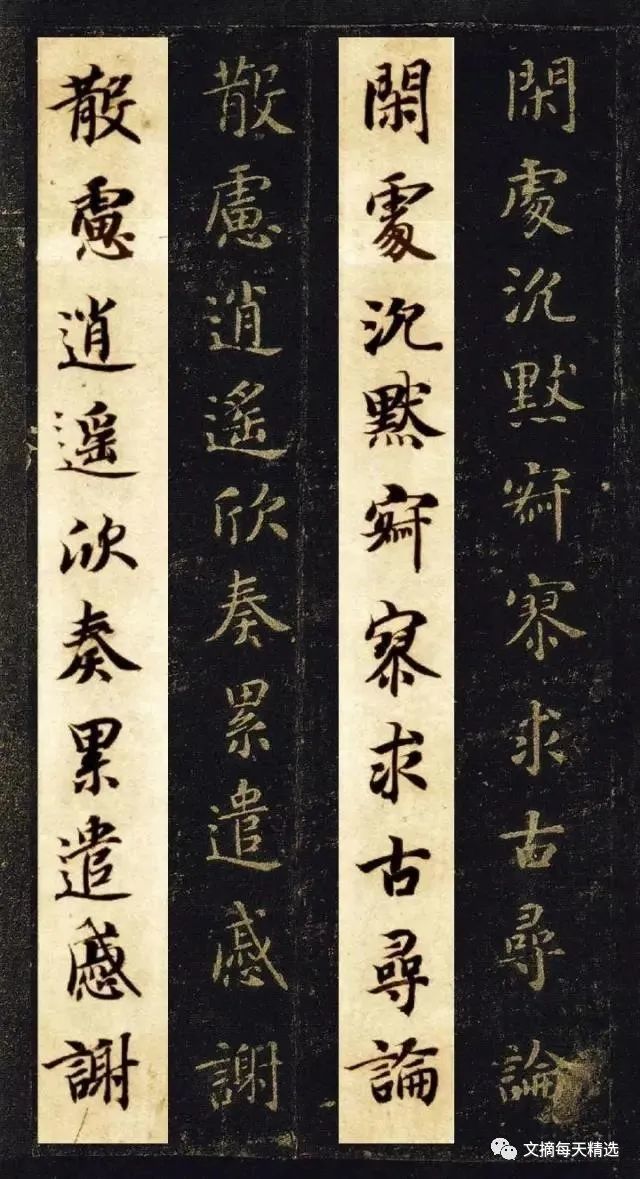 閑處沉默寂寥求古尋論
閑處沉默寂寥求古尋論
散慮逍遥欣奏累遣慼謝
散慮逍遥欣奏累遣慼謝
文摘每天精选